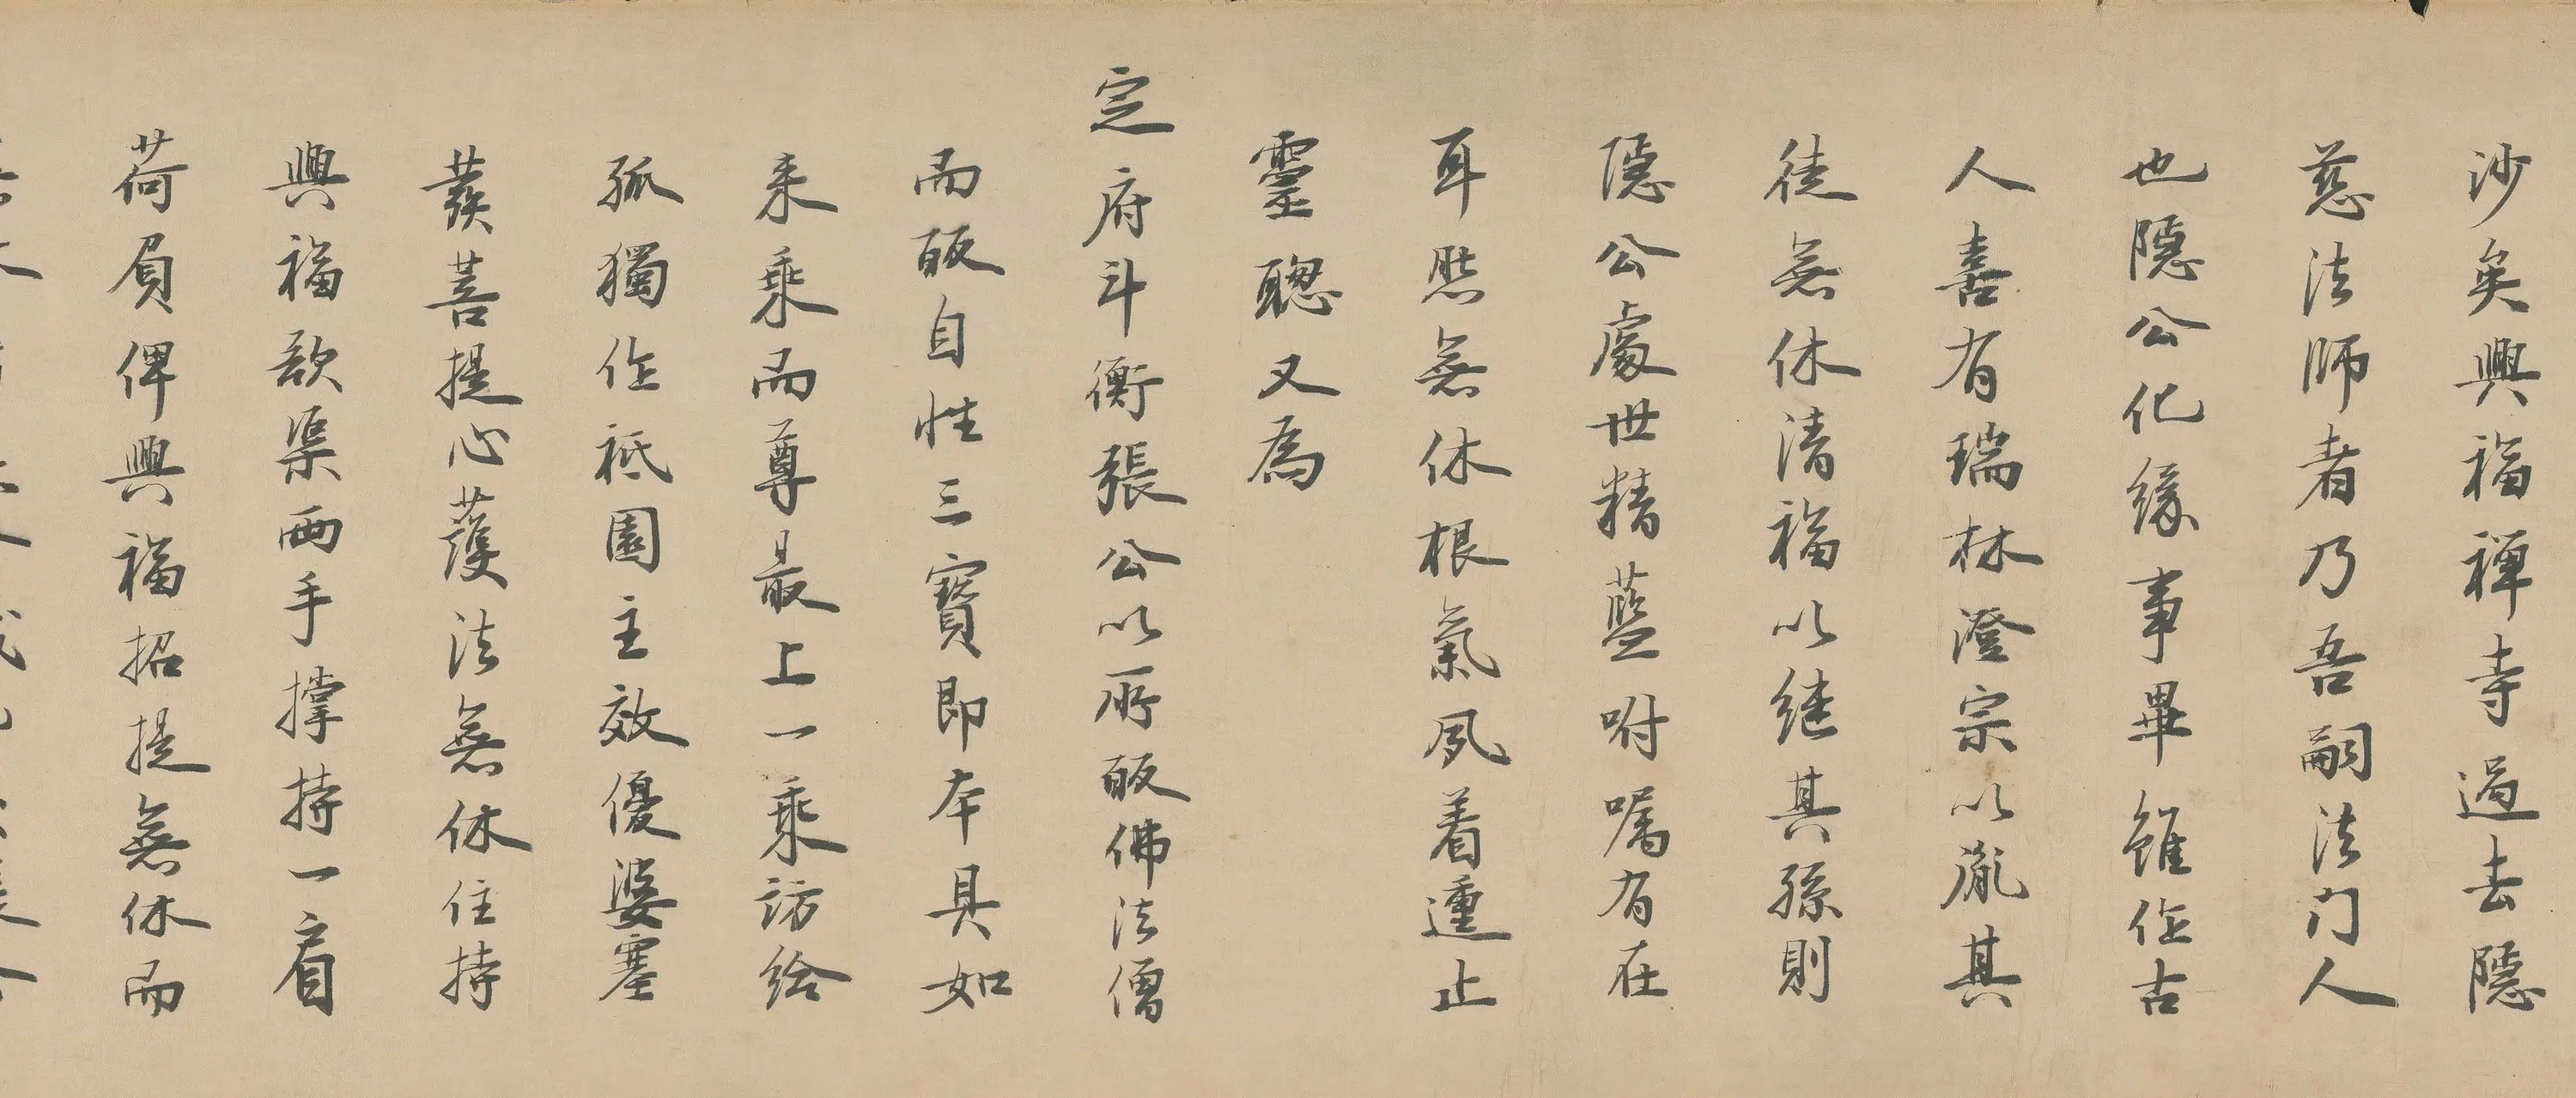 沙矣興福禪寺過去隱
慈法師者乃吾嗣法门人
也隱公化緣事畢雖作古
人喜有瑞林澄宗以胤其
徒無休清福以継其孫則
隱公處世精藍咐嘱有在
耳然無休根氣夙着遽止
靈聰又為
定府斗衡張公以所皈佛法僧
而皈自性三寶即本具如
来乘而尊最上一乘訪给
孤獨作祇園主效優婆塞
發菩提心護法無休住持
興福欲渠両手撑持一肩
荷負俾興福招提無休而